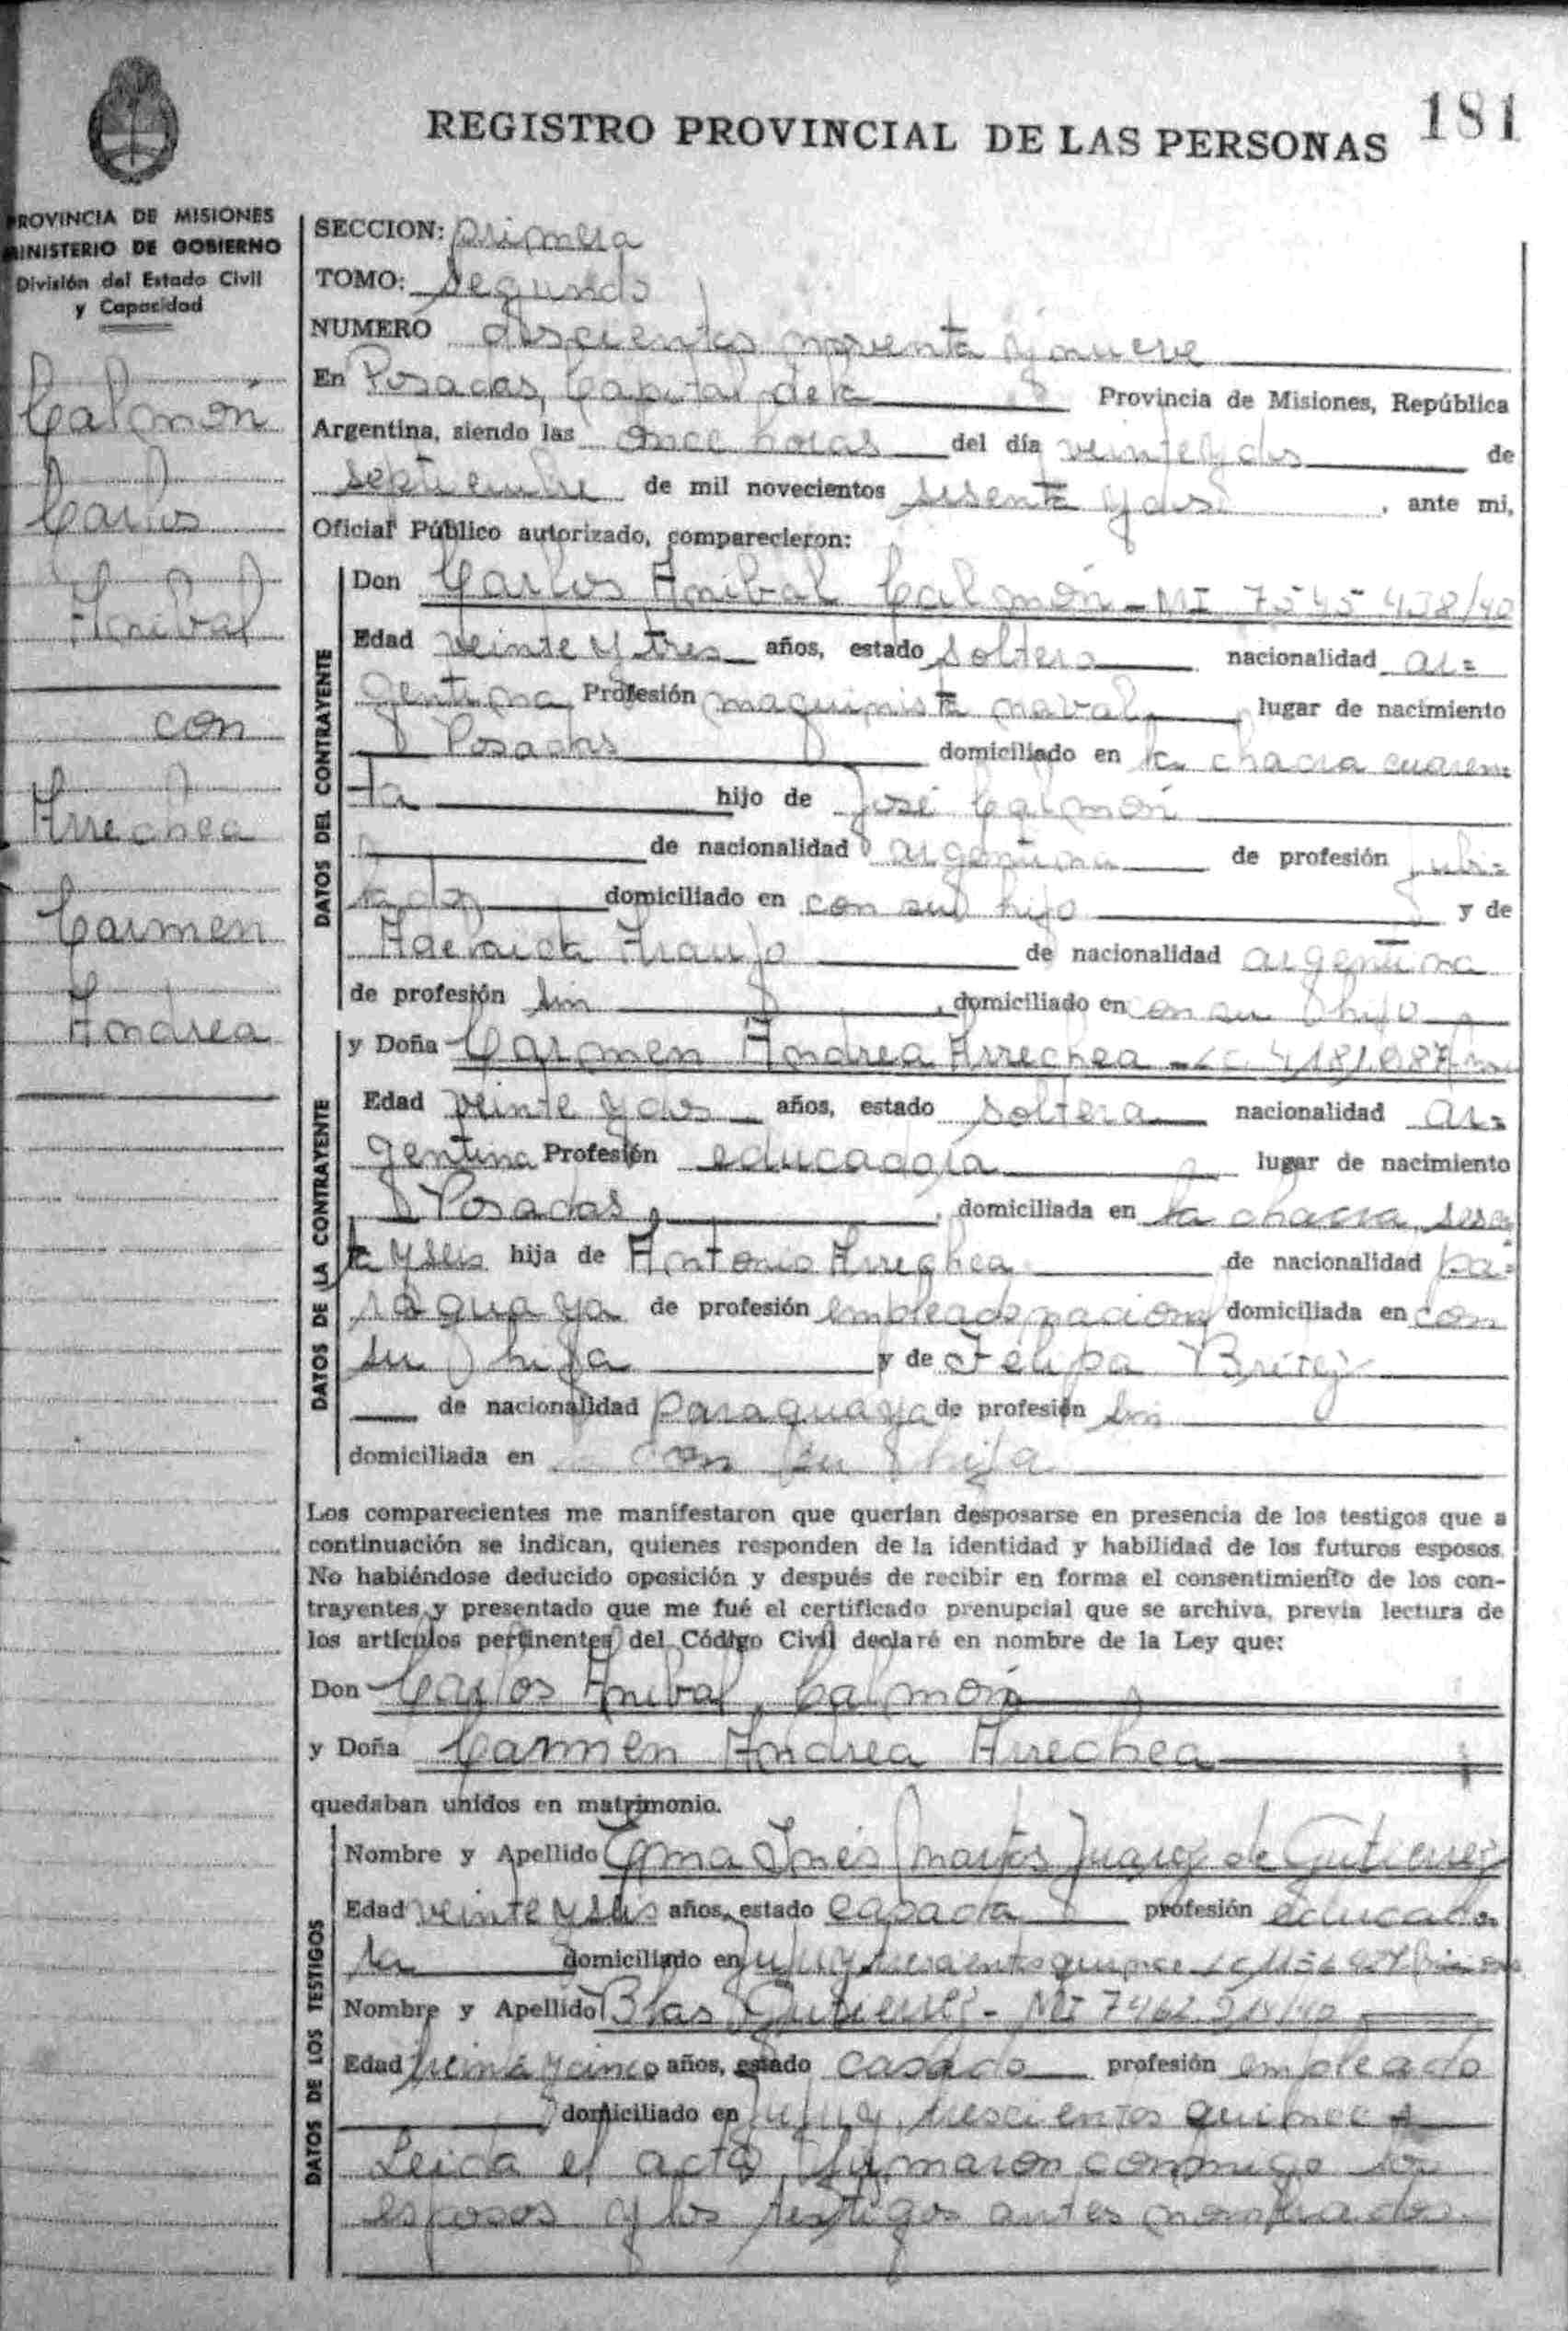 181
REGISTRO PROVINCIAL DE LAS PERSONAS
PROVINCIA DE MISIONES
MINISTERIO DE GOBIERNO
División del Estado Civil
y Capacidad
Calmón
Carlos
Anibal
con
Arrechea
Carmen
Andrea
SECCION: primera
TOMO: segundo
NUMERO doscientos noventa y nueve
En Posadas, Capital de la Provincia de Misiones, República
Argentina, siendo las once horas del día veinte y dos de
septiembre de mil novecientos sesenta y dos , ante mi,
Oficial Público autorizado, comparecieron:
DATOS DEL CONTRAYENTE
Don Carlos Anibal Calmón - MI 7545 438/40
Edad veinte y tres años, estado soltero nacionalidad ar=
gentina Profesión maquinista naval lugar de nacimiento
Posadas domiciliado en la chacra cuaren=
ta hijo de José Calmón
de nacionalidad argentina de profesión jubi=
lado domiciliado en con su hijo y de
Adelaida Araujo de nacionalidad argentina
de profesión sin , domiciliado en con su hijo
DATOS DE LA CONTRAYENTE
y Doña Carmen Andrea Arrechea - LC 4181.087
Edad veinte y dos años, estado soltera nacionalidad ar=
gentina Profesión educadora lugar de nacimiento
Posadas , domiciliada en la chacra sesen
ta y seis hija de Antonio Arrechea de nacionalidad pa=
raguaya de profesión empleado nacional domiciliada en con
su hija y de Felipa Britez
de nacionalidad paraguaya de profesión sin
domiciliada en con su hija
Los comparecientes me manifestaron que querían desposarse en presencia de los testigos que a
continuación se indican, quienes responden de la identidad y habilidad de los futuros esposos.
No habiéndose deducido oposición y después de recibir en forma el consentimiento de los con-
trayentes y presentado que me fué el certificado prenupcial que se archiva, previa lectura de
los artículos pertinentes del Código Civil declaré en nombre de la Ley que:
Don Carlos Anibal Calmón
y Doña Carmen Andrea Arrechea
quedaban unidos en matrimonio.
DATOS DE LOS TESTIGOS
Nombre y Apellido Inés Juarez de Gutierrez
Edad veinte y seis años, estado casada profesión educado
ra domiciliado en Jujuy trescientos quince LC
Nombre y Apellido Blas Gutierrez - MI 7462
Edad treinta y cinco años, estado casado profesión empleado
domiciliado en Jujuy, trescientos quince
Leida el acta, firmaron conmigo los
esposos y los testigos antes nombrados.